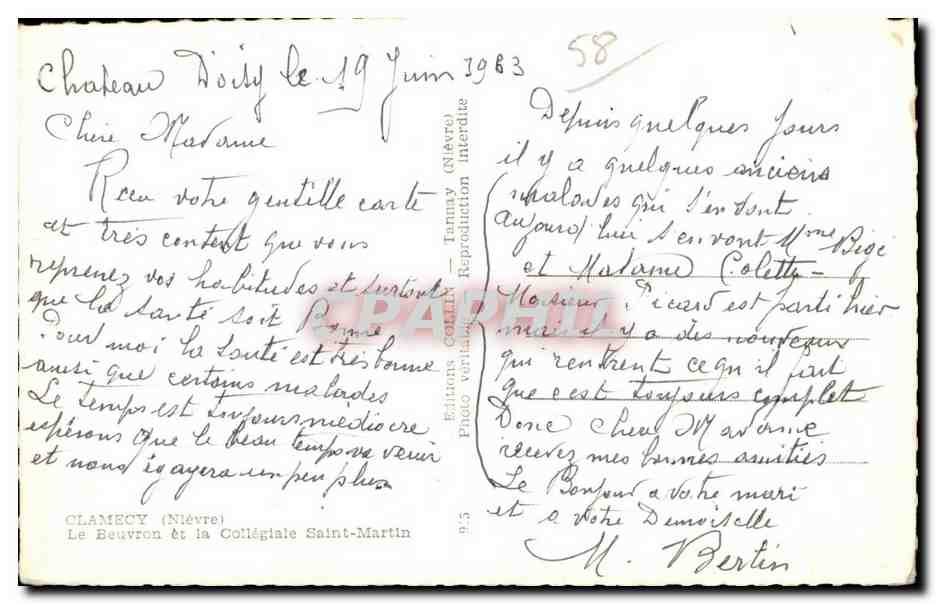 58
Chateau D'oisy le 19 Juin 1963
Chère Madame
Recu votre gentille carte
et très content que vous
reprenez vos habitudes et surtout
que la santé soit Bonne
Pour moi la santé est très bonne
ainsi que certains malades
Le temps est toujours médiocre
espérons que le beau temps va venir
et nous égayera un peu plus
CLAMECY (Nièvre)
Le Beuvron et la Collégiale Saint-Martin
Editions COLLIN — Tannay (Nièvre)
Photo véritable Reproduction interdite
95
Depuis quelques Jours
il y a quelques anciens
malades qui s'en vont
aujourd'hui s'en vont Mme Bigé
et Madame Colette
Monsieur Picard est parti hier
mais il y a des nouveaux
qui rentrent ce qu'il fait
que c'est toujours complet
Donc chere Madame
recevez mes bonnes amitiés
Le Bonjour a votre mari
et a votre Demoiselle
M. Bertin
CPAPHIL